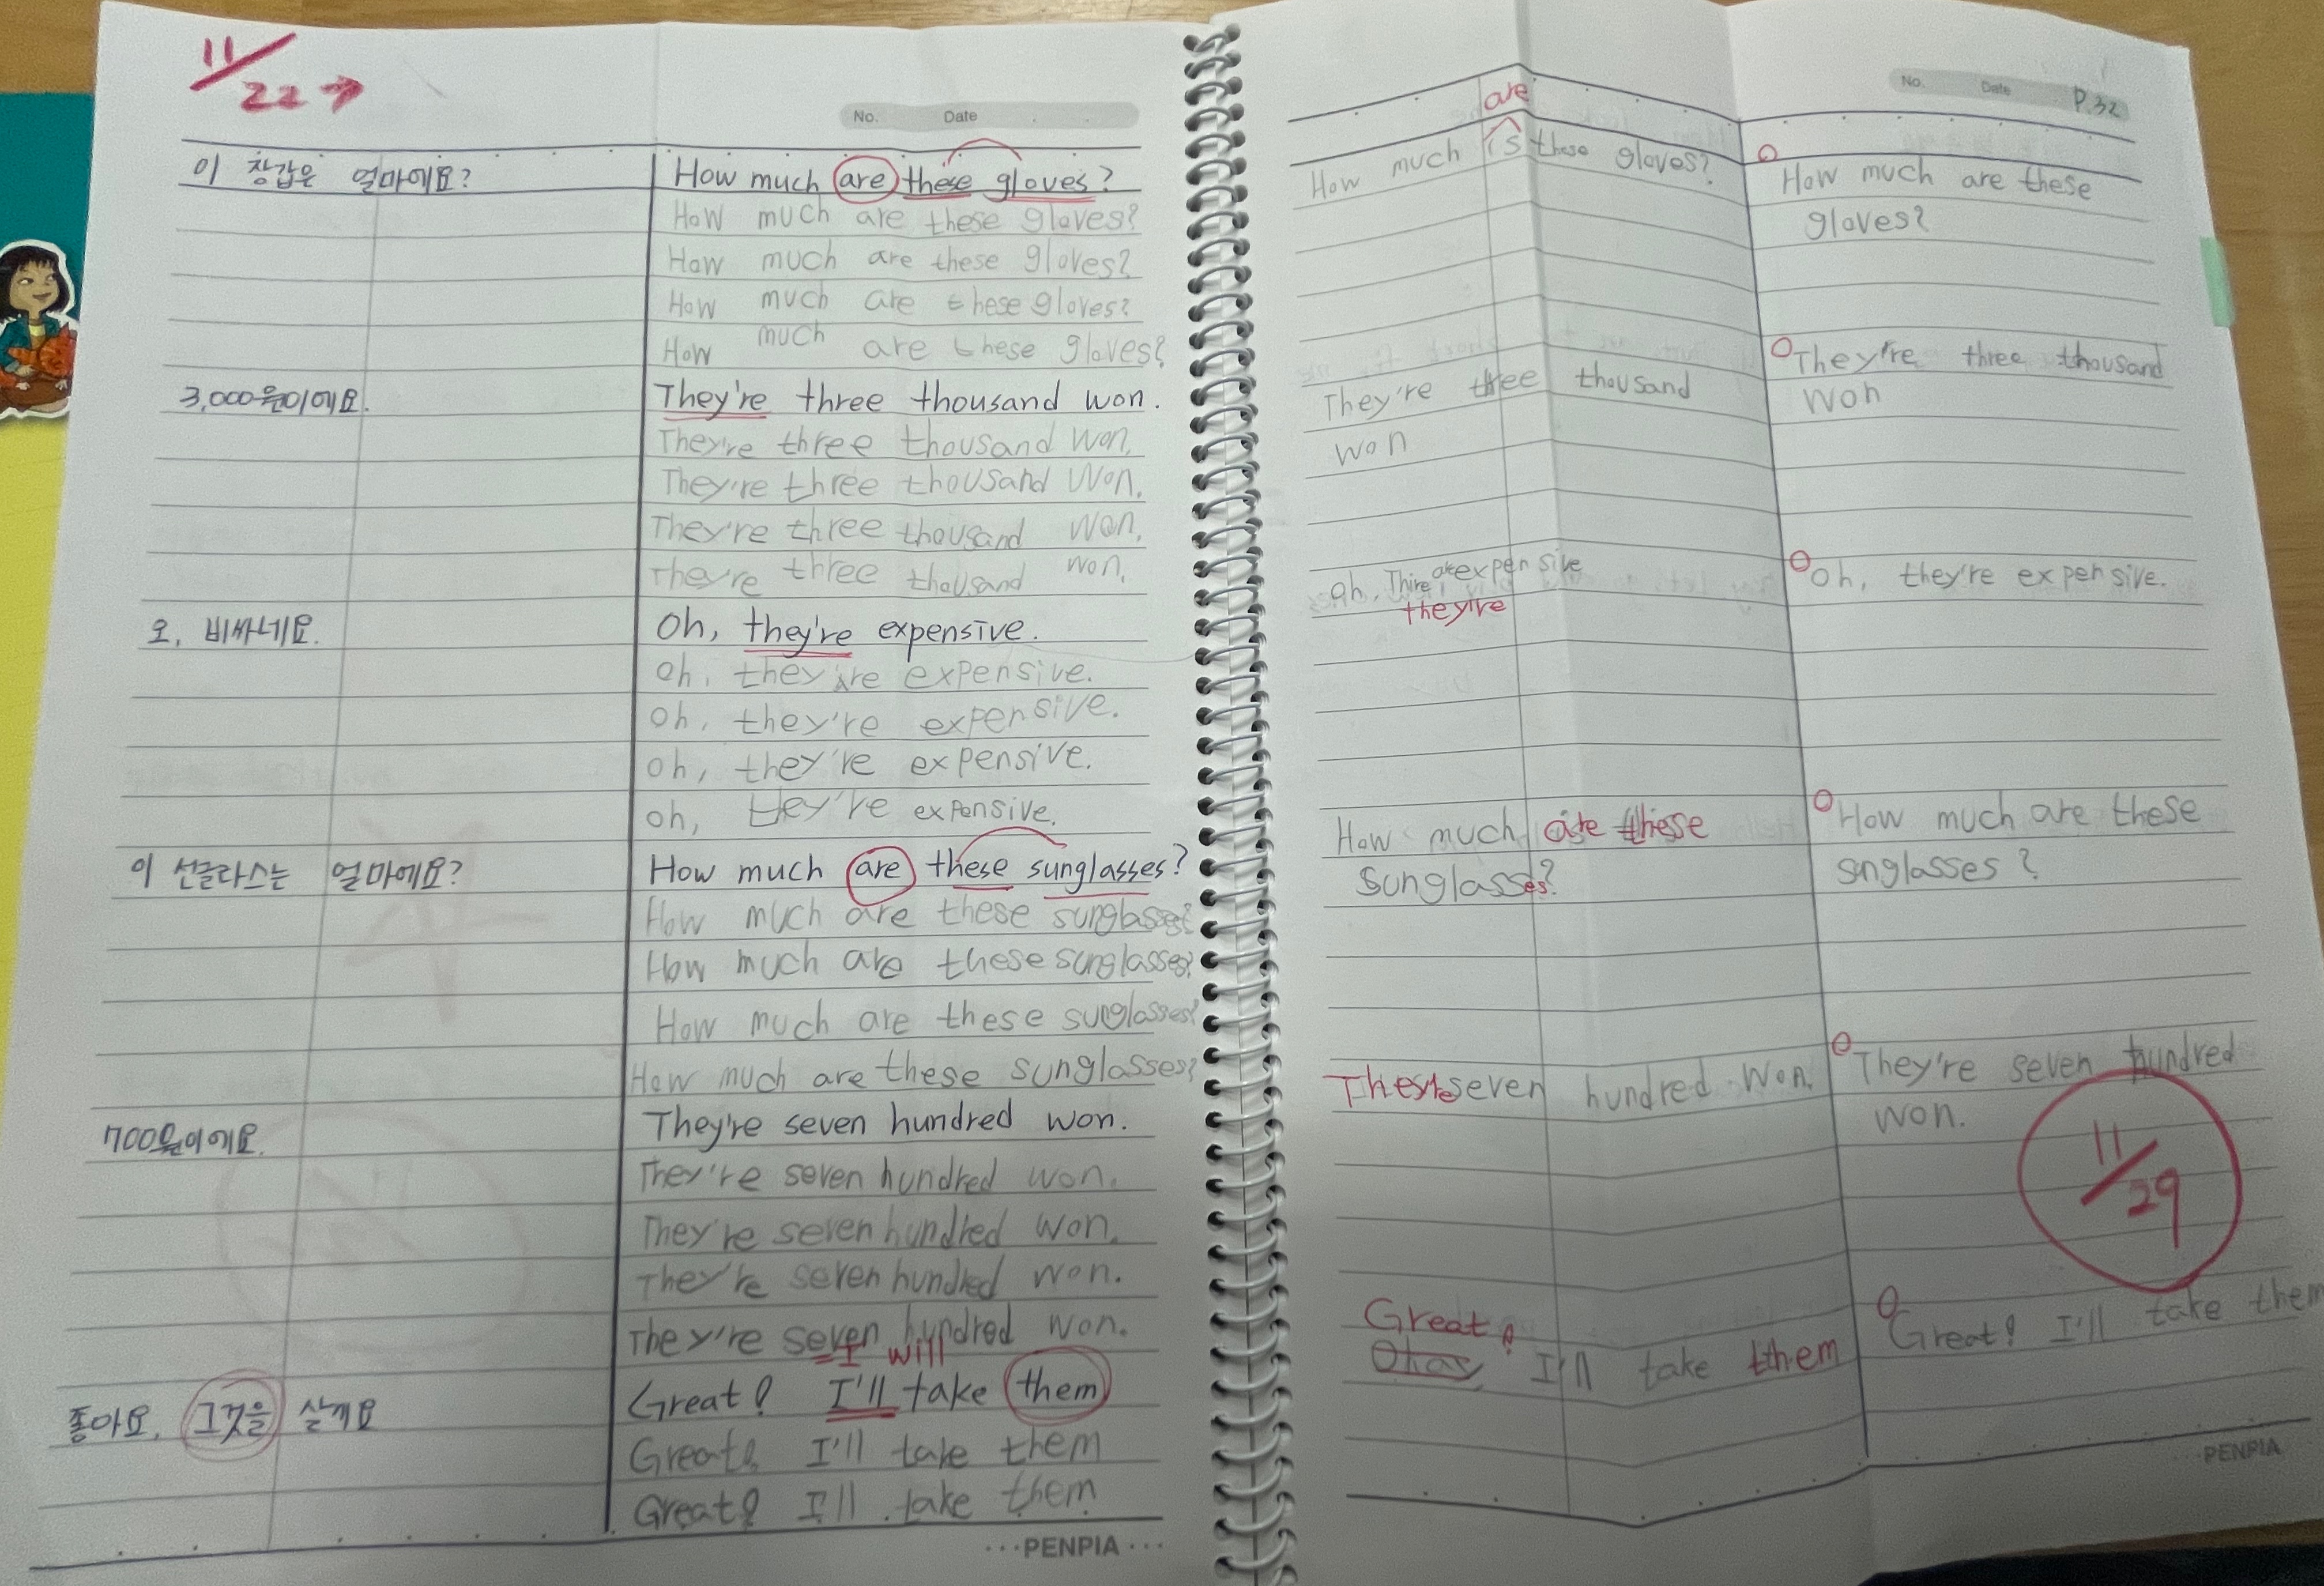 11/22→
No. Date
이 장갑은 얼마에요? How much are these gloves?
How much are these gloves?
How much are these gloves?
How much are these gloves?
How much are these gloves?
3,000원이에요. They're three thousand won.
They're three thousand won.
They're three thousand won.
They're three thousand won.
They're three thousand won.
오, 비싸네요. Oh, they're expensive.
oh, they're expensive.
oh, they're expensive.
oh, they're expensive.
oh, they're expensive.
이 선글라스는 얼마에요? How much are these sunglasses?
How much are these sunglasses?
How much are these sunglasses?
How much are these sunglasses?
How much are these sunglasses?
700원이에요. They're seven hundred won.
They're seven hundred won.
They're seven hundred won.
They're seven hundred won.
They're seven hundred won.
I will
좋아요, 그것을 살게요 Great! I'll take them
Great! I'll take them
Great! I'll take them
PENPIA
are
How much is these gloves?
They're three thousand
won
oh, expensive
they're
How much are these
sunglasses?
They're seven hundred won.
Great!
Okay, I'll take them
No. Date P.32
How much are these
gloves?
They're three thousand
won
oh, they're expensive.
How much are these
snglasses?
They're seven hundred
won.
11/29
Great! I'll take them
PENPIA